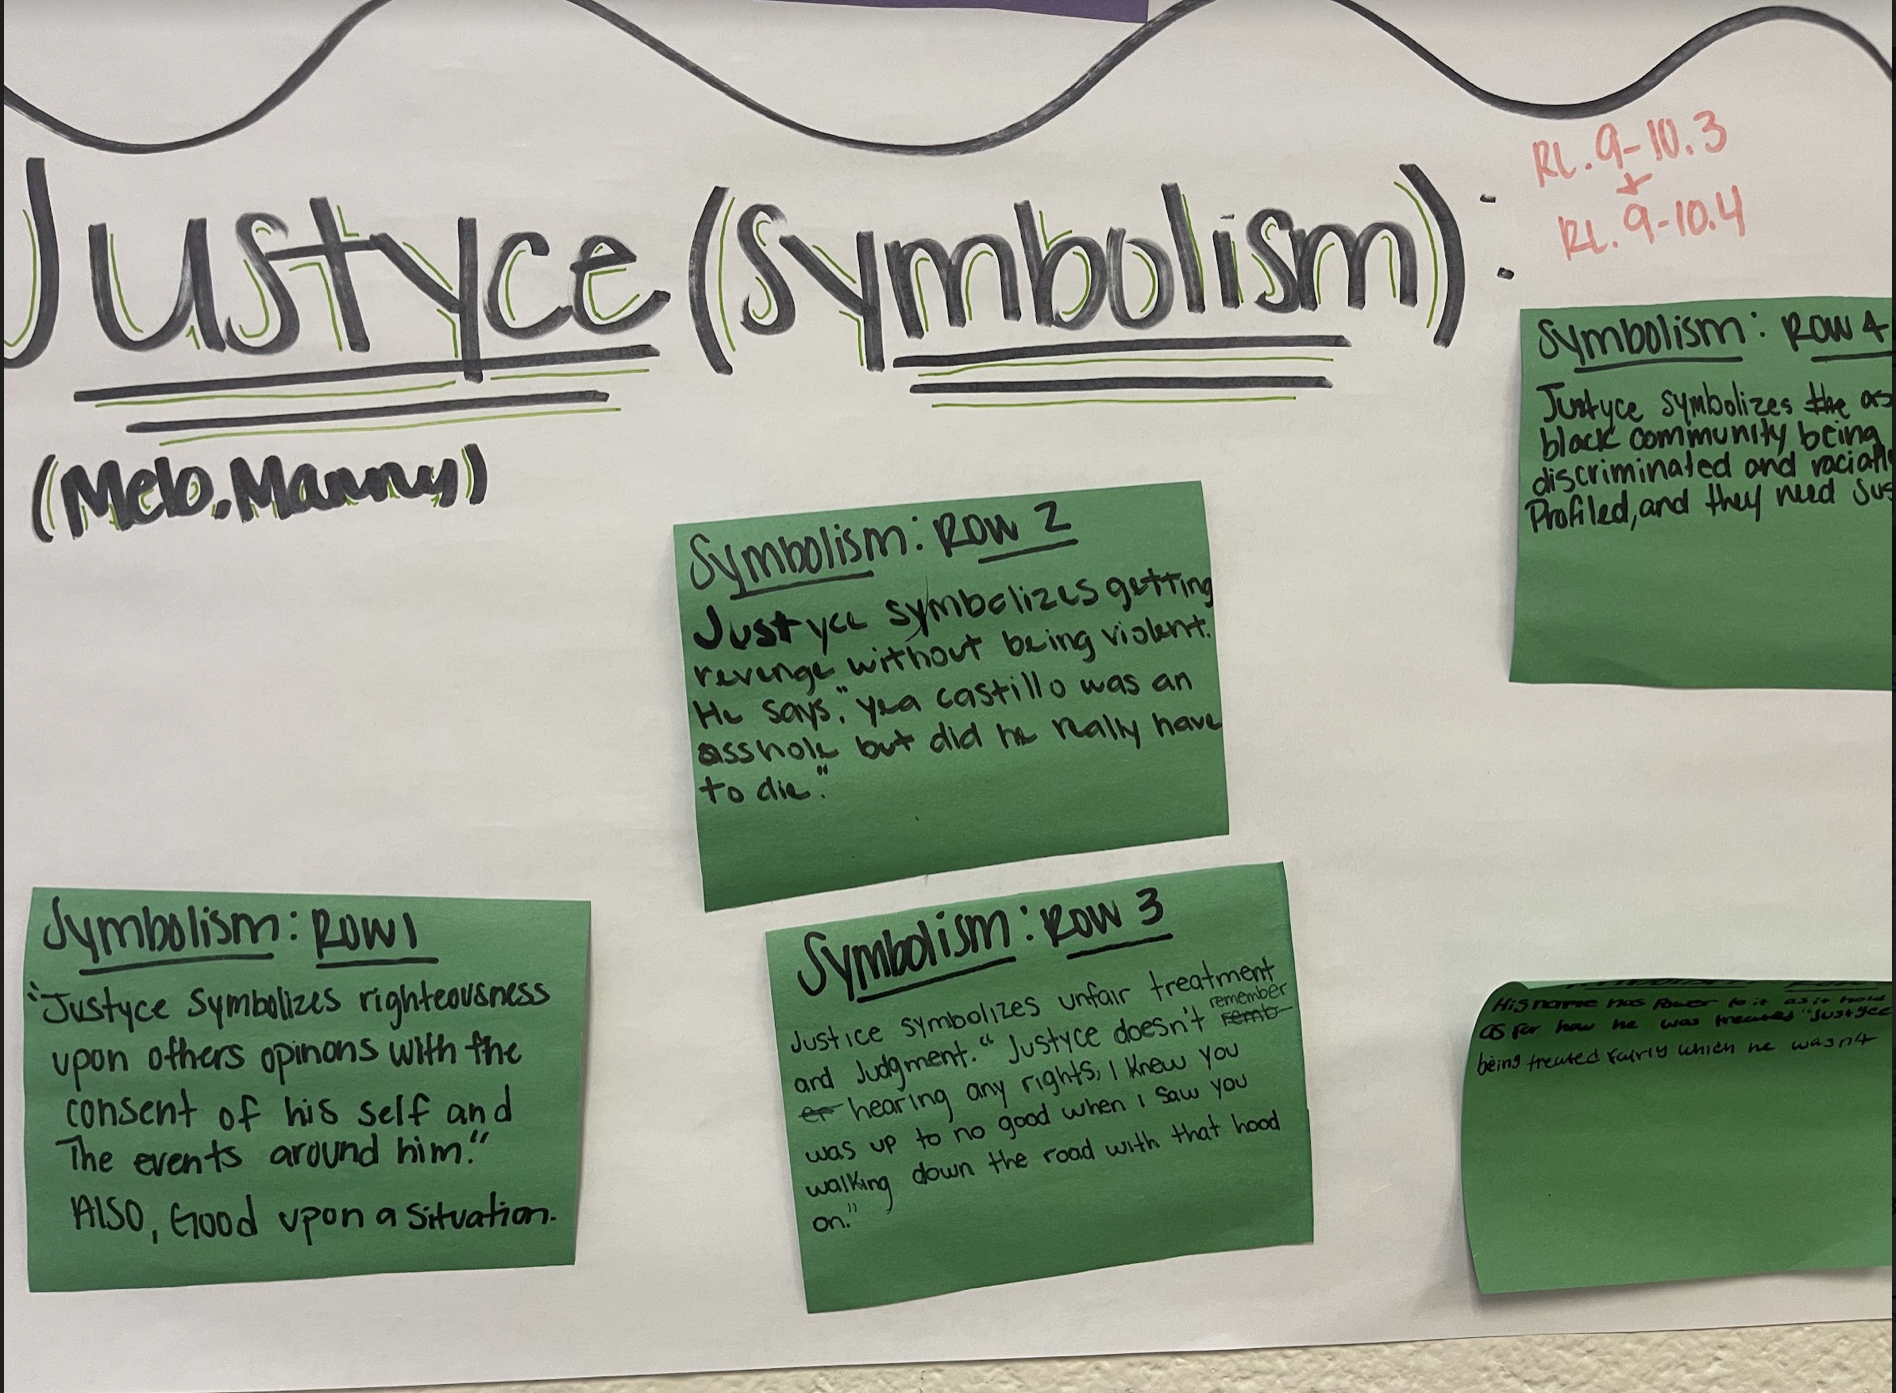 Justyce (Symbolism):
(Melo, Manny)
RL. 9-10.3
+
RL. 9-10.4
Symbolism: Row 1
"Justyce Symbolizes righteousness
upon others opinons with the
consent of his self and
The events around him."
Also, Good upon a Situation.
Symbolism: Row 2
Justyce symbolizes getting
revenge without being violent.
He says, "yea castillo was an
asshole but did he really have
to die."
Symbolism: Row 3
Justice symbolizes unfair treatment
and Judgment." Justyce doesn't remember
hearing any rights, I knew you
was up to no good when I saw you
walking down the road with that hood
on."
Symbolism: Row 4
Justyce symbolizes the
black community being
discriminated and
Profiled, and they need
His name has Power to it as it
as for how he was treated "Justyce
being treated fairly which he wasn't